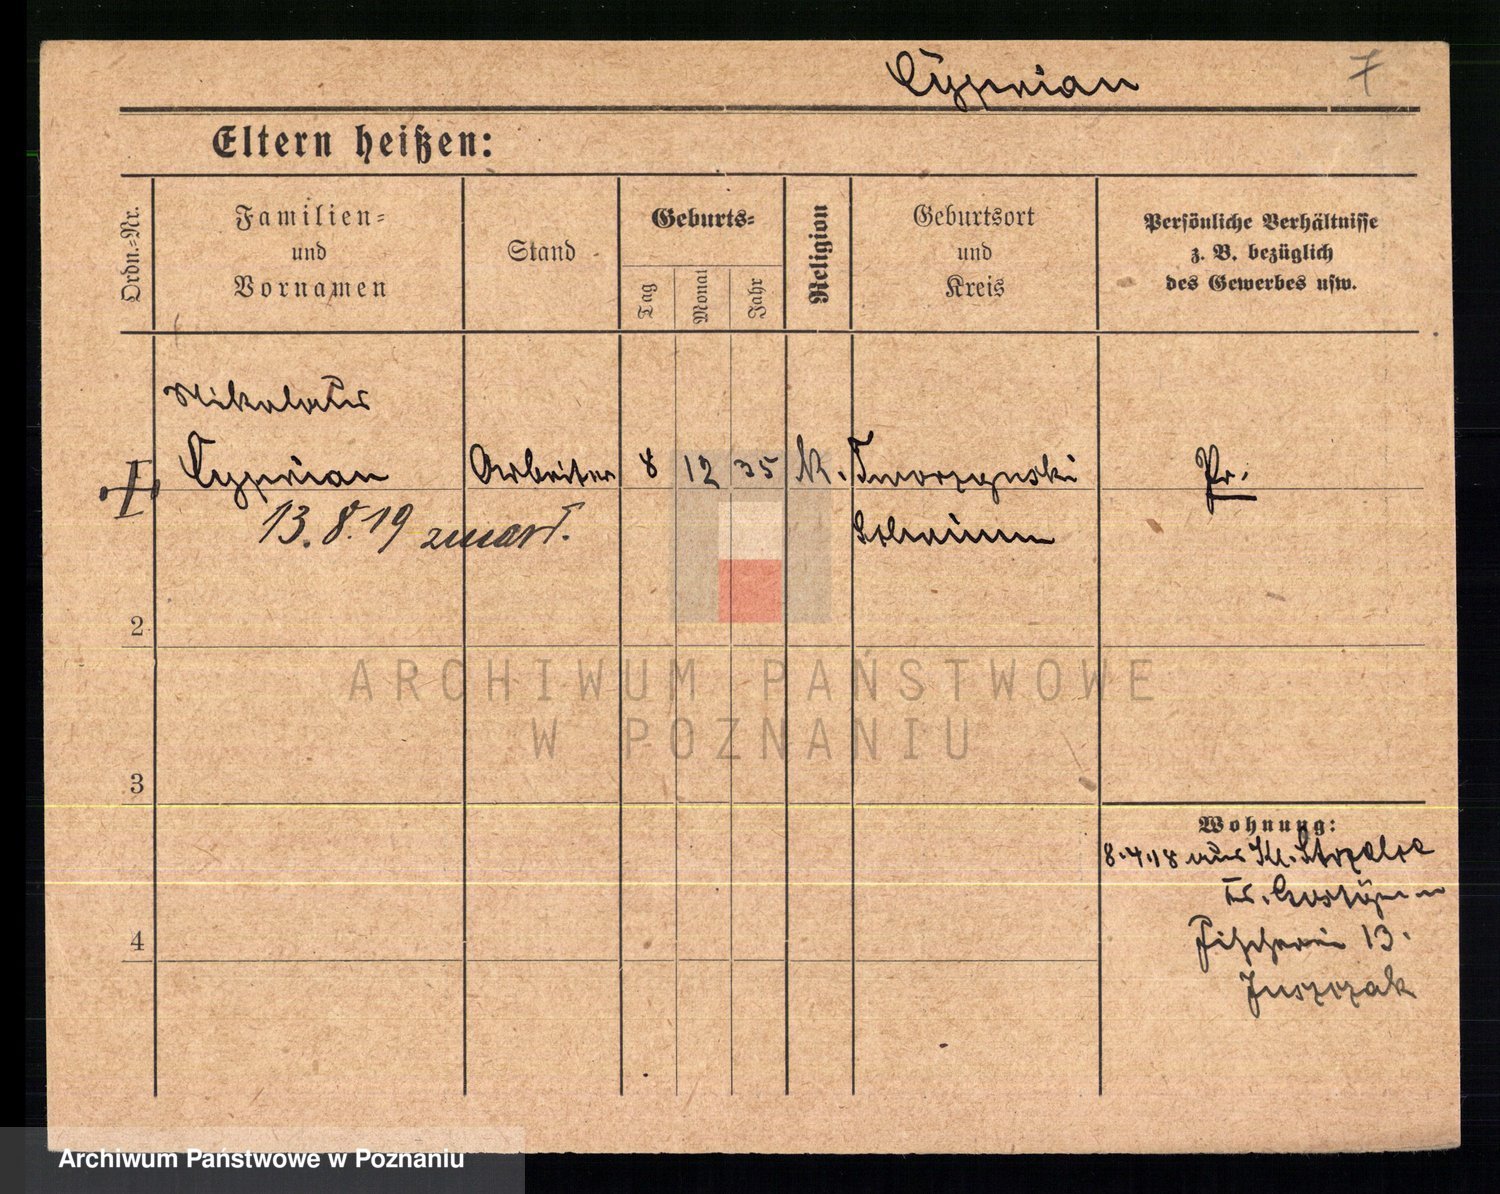 Cyprian 7
Eltern heißen:
Ordn.-Nr.
Familien-
und
Vornamen
Stand
Geburts-
Tag
Monat
Jahr
Religion
Geburtsort
und
Kreis
Persönliche Verhältnisse
z. B. bezüglich
des Gewerbes usw.
Nikolaus
Cyprian Arbeiter 8 12 35 K. Tworzynski Pr.
13.8.19 zmarł.
2
3
4
Wohnung:
8.4.18 aus Kl. Strzelce
Kr. Gostyn
Fischerei 13.
Juszczak
ARCHIWUM PAŃSTWOWE
W POZNANIU
Archiwum Państwowe w Poznaniu